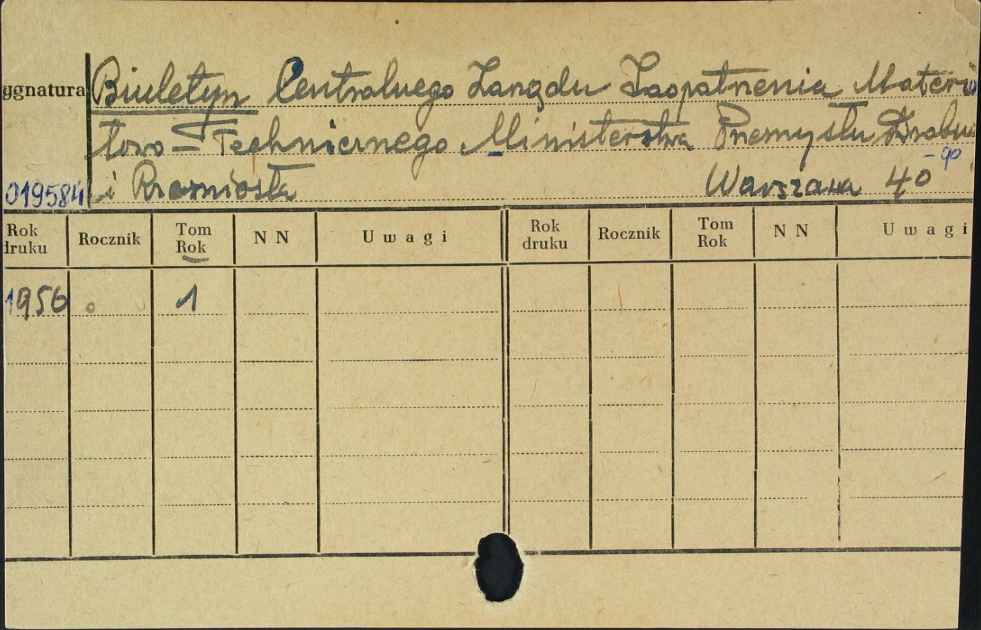 ygnatura Biuletyn Centralnego Zarządu Zaopatrzenia Materia
łowo-Technicznego Ministerstwa Przemysłu Drobn
019584 i Rzemiosła Warszawa 4° -qp
Rok druku Rocznik Tom Rok NN Uwagi Rok druku Rocznik Tom Rok NN Uwagi
1956 1